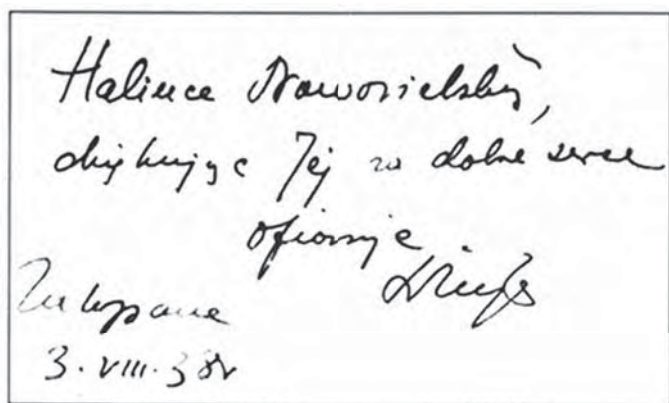 Halince Nowosielskiej,
dziękując Jej za dobre serce
ofiaruje
Zakopane
3. VIII. 38r